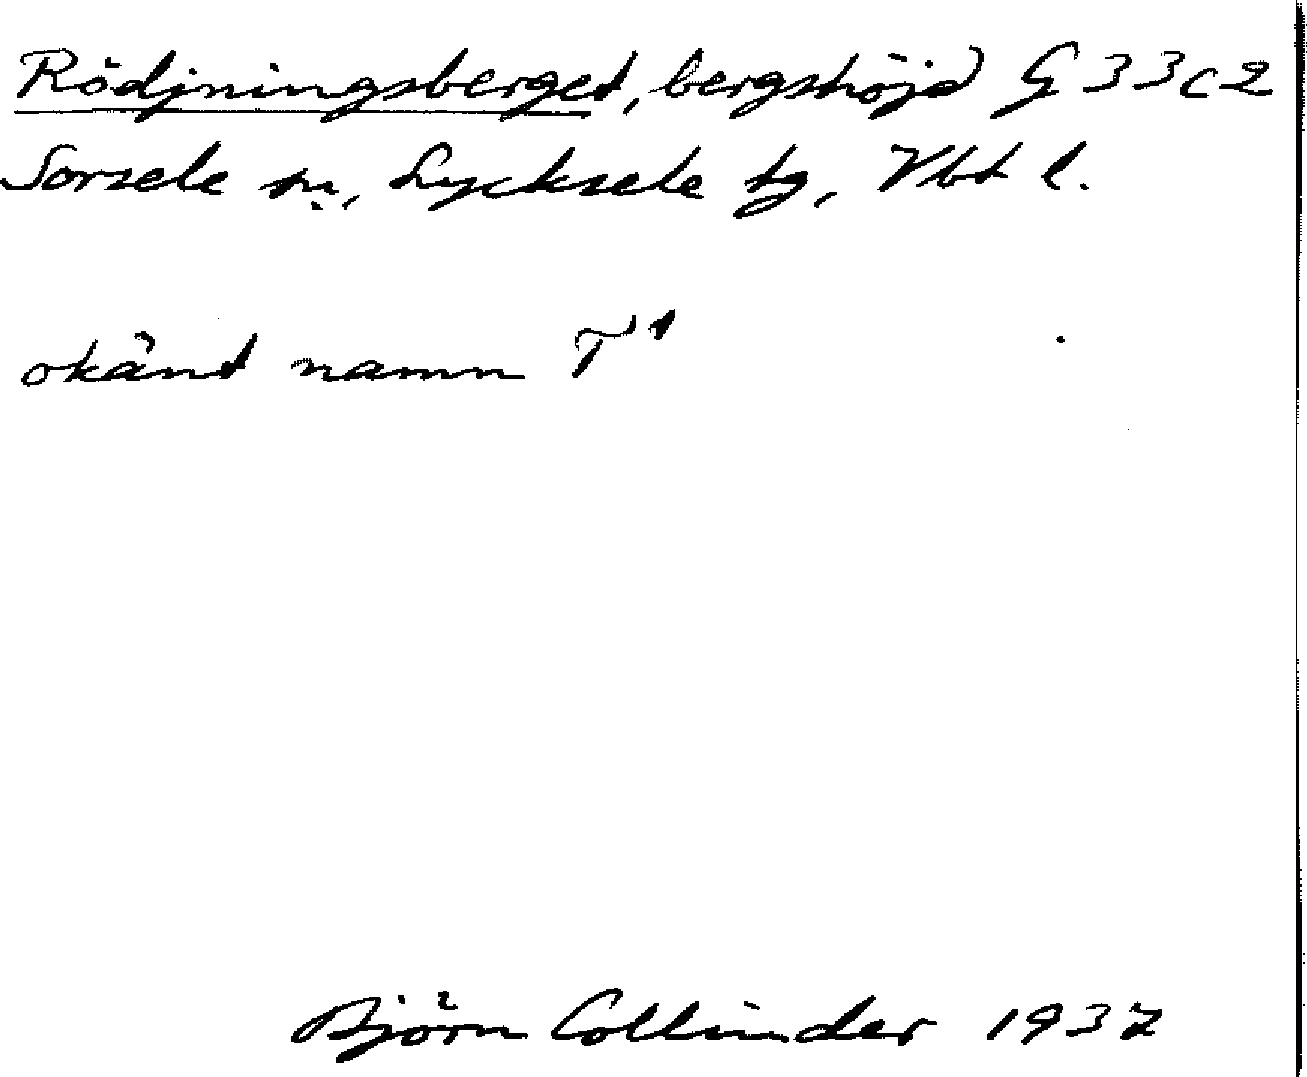 Rödjningsberget, bergshöjd G 33c2
Sorsele sn, Lycksele tg, Vbt l.
okänt namn T¹
Björn Collinder 1937